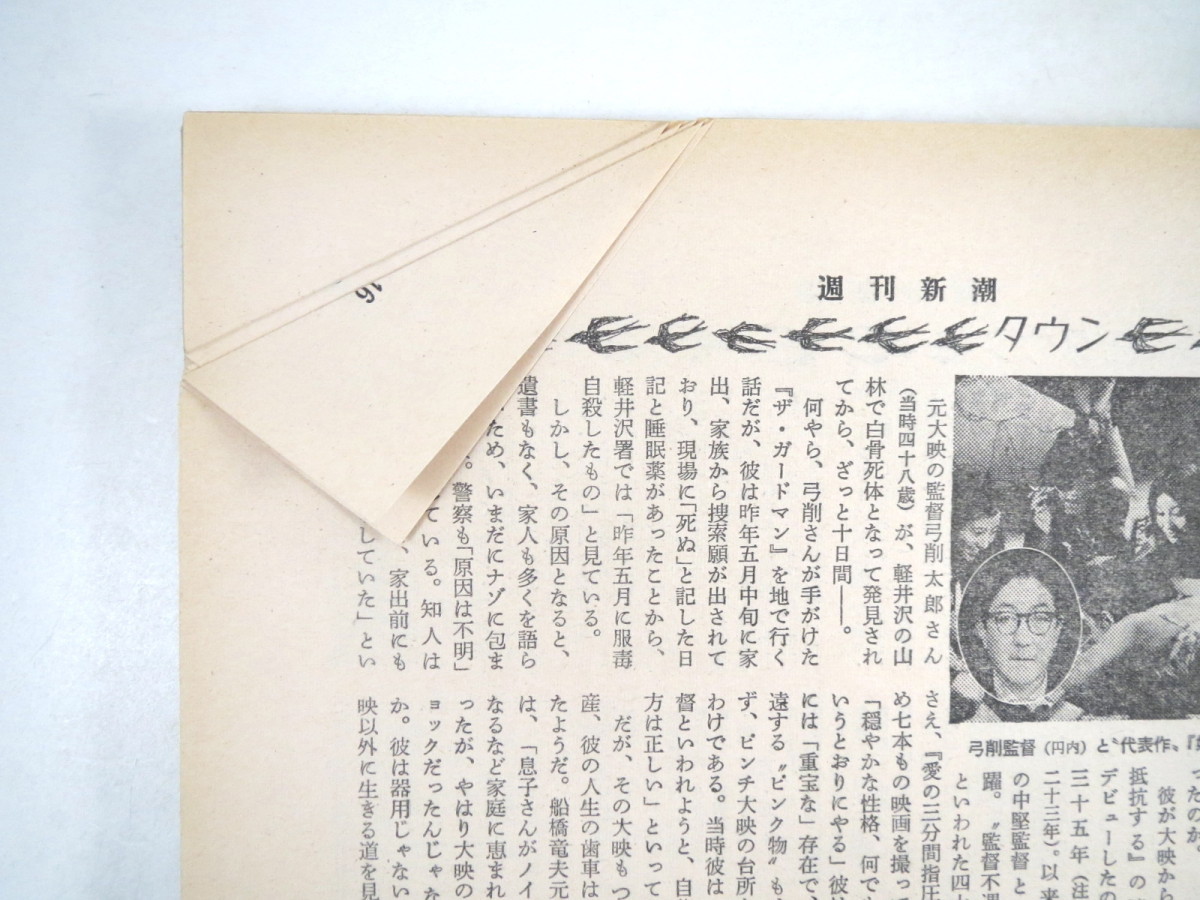 週刊新潮
タウン
元大映の監督弓削太郎さん
（当時四十八歳）が、軽井沢の山
林で白骨死体となって発見され
てから、ざっと十日間――。
何やら、弓削さんが手がけた
『ザ・ガードマン』を地で行く
話だが、彼は昨年五月中旬に家
出、家族から捜索願が出されて
おり、現場に「死ぬ」と記した日
記と睡眠薬があったことから、
軽井沢署では「昨年五月に服毒
自殺したもの」と見ている。
しかし、その原因となると、
遺書もなく、家人も多くを語ら
ため、いまだにナゾに包ま
。警察も「原因は不明」
ている。知人は
、家出前にも
していた」とい
弓削監督（円内）と〝代表作〟
ったのか。
彼が大映から
抵抗する』の
デビューしたの
三十五年（注
二十三年）。以来
の中堅監督と
躍。〝監督不遇
といわれた四十
さえ、『愛の三分間指圧
め七本もの映画を撮って
「穏やかな性格、何で
いうとおりにやる」彼
には「重宝な」存在で、
遠する〝ピンク物〟も
ず、ピンチ大映の台所
わけである。当時彼は
督といわれようと、自
方は正しい」といって
だが、その大映もつ
産、彼の人生の歯車は
たようだ。船橋竜夫元
は、「息子さんがノイ
なるなど家庭に恵まれ
ったが、やはり大映の
ョックだったんじゃな
か。彼は器用じゃない
映以外に生きる道を見
16